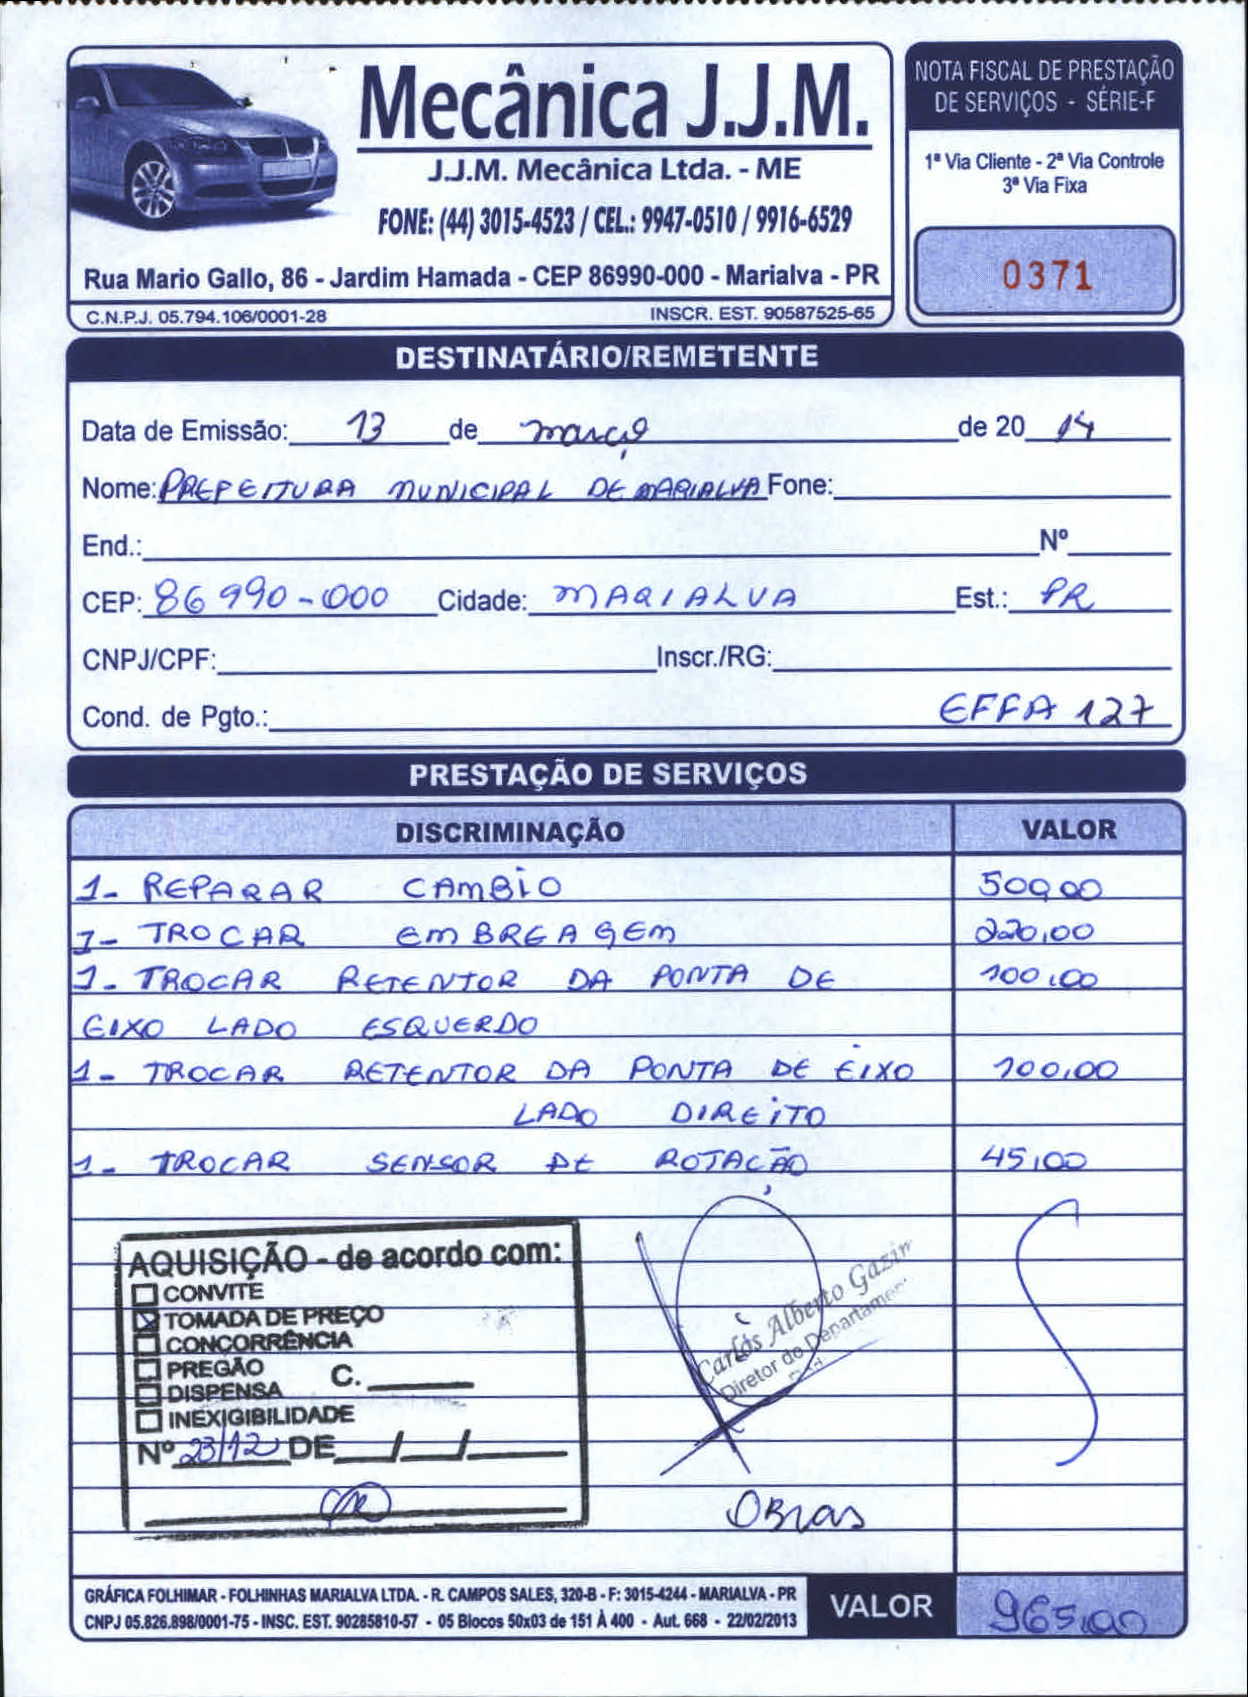 Mecânica J.J.M.
J.J.M. Mecânica Ltda. - ME
FONE: (44) 3015-4523 / CEL.: 9947-0510 / 9916-6529
Rua Mario Gallo, 86 - Jardim Hamada - CEP 86990-000 - Marialva - PR
C.N.P.J. 05.794.106/0001-28 INSCR. EST. 90587525-65
NOTA FISCAL DE PRESTAÇÃO
DE SERVIÇOS - SÉRIE-F
1ª Via Cliente - 2ª Via Controle
3ª Via Fixa
0371
DESTINATÁRIO/REMETENTE
Data de Emissão: 13 de março de 20 14
Nome: PREFEITURA MUNICIPAL DE MARIALVA Fone:
End.: Nº
CEP: 86990-000 Cidade: MARIALVA Est.: PR
CNPJ/CPF: Inscr./RG:
Cond. de Pgto.: EFFA 127
PRESTAÇÃO DE SERVIÇOS
DISCRIMINAÇÃO VALOR
1- REPARAR CAMBIO 500,00
1- TROCAR EMBREAGEM 220,00
1- TROCAR RETENTOR DA PONTA DE 100,00
EIXO LADO ESQUERDO
1- TROCAR RETENTOR DA PONTA DE EIXO 100,00
LADO DIREITO
1- TROCAR SENSOR DE ROTAÇÃO 45,00
AQUISIÇÃO - de acordo com:
CONVITE
TOMADA DE PREÇO
CONCORRÊNCIA
PREGÃO C.
DISPENSA
INEXIGIBILIDADE
Nº 23/12 DE / /
Carlos Alberto Gazin
Diretor do Departamen
Obras
GRÁFICA FOLHIMAR - FOLHINHAS MARIALVA LTDA. - R. CAMPOS SALES, 320-B - F: 3015-4244 - MARIALVA - PR
CNPJ 05.826.898/0001-75 - INSC. EST. 90285810-57 - 05 Blocos 50x03 de 151 À 400 - Aut. 668 - 22/02/2013
VALOR 965,00